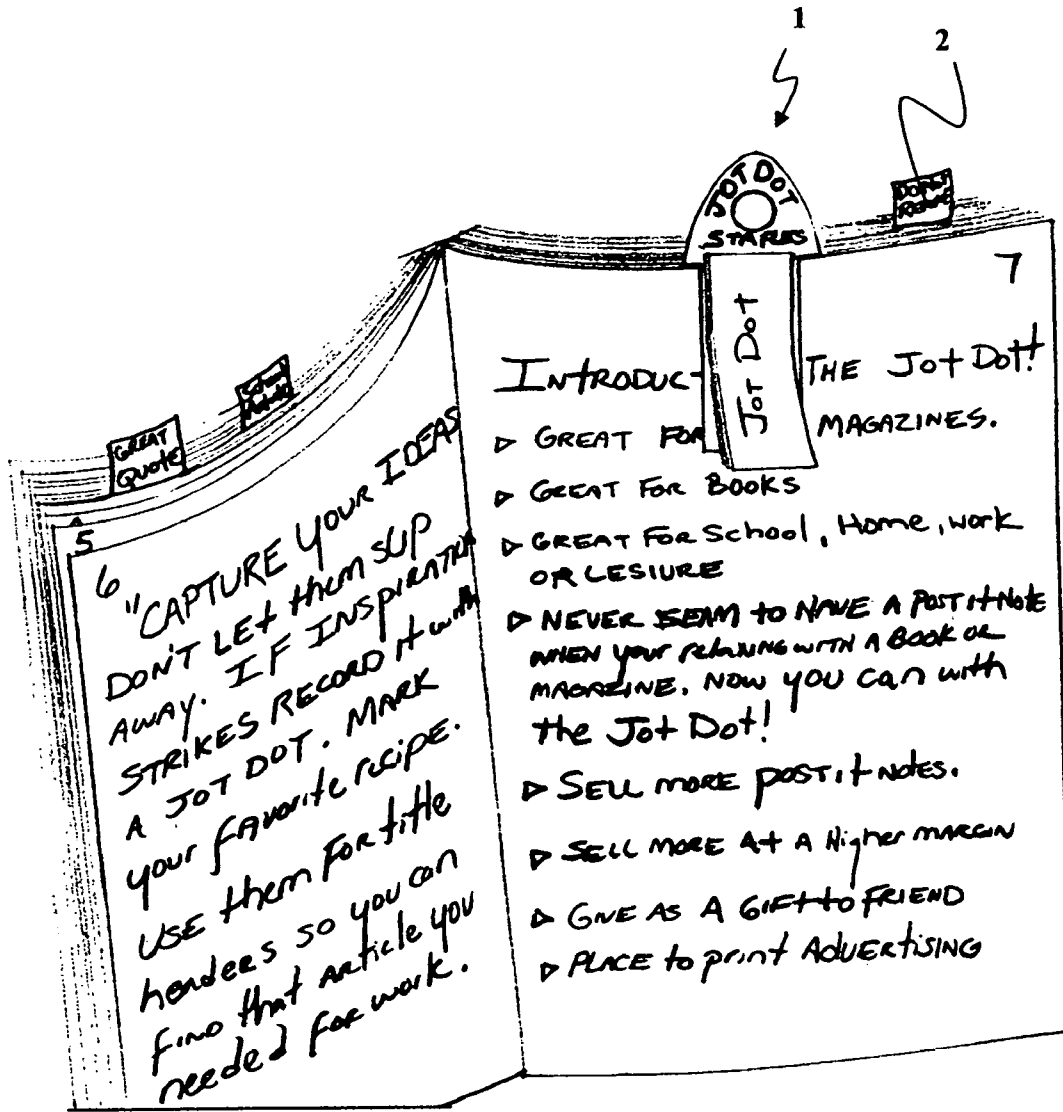 1
2
JOT DOT
STAPLES
7
Jot Dot
GREAT
QUOTE
School
5
6
"CAPTURE YOUR IDEAS
DON'T LET them SLIP
AWAY. IF INSPIRATION
STRIKES RECORD It with
A JOT DOT. MARK
your favorite recipe.
USE them For title
headers so you can
find that article you
needed for work.
INTRODUC THE Jot Dot!
▷ GREAT FOR MAGAZINES.
▷ GREAT FOR BOOKS
▷ GREAT FOR School, Home, work
OR LESIURE
▷ NEVER SEAM to HAVE A POST it NOTE
WHEN your relaxing WITH A BOOK OR
MAGAZINE. NOW you can with
the Jot Dot!
▷ SELL MORE post it NOTES.
▷ SELL MORE At A Higher MARGIN
▷ GIVE AS A GIFT to FRIEND
▷ PLACE to print ADVERTISING